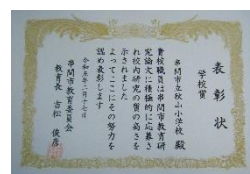 表彰状
学校賞
串間市立秋山小学校 殿
貴校職員は串間市教育研
究論文に積極的に応募さ
れ校内研究の質の高さを
示されました
よってここにその努力を
認め表彰します
令和五年二月十七日
串間市教育委員会
教育長 吉松 俊彦